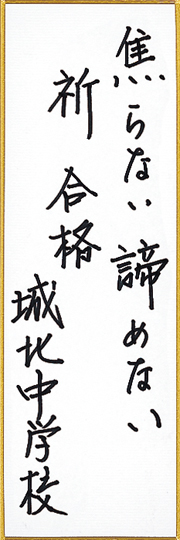 焦らない 諦めない
祈 合格
城北中学校